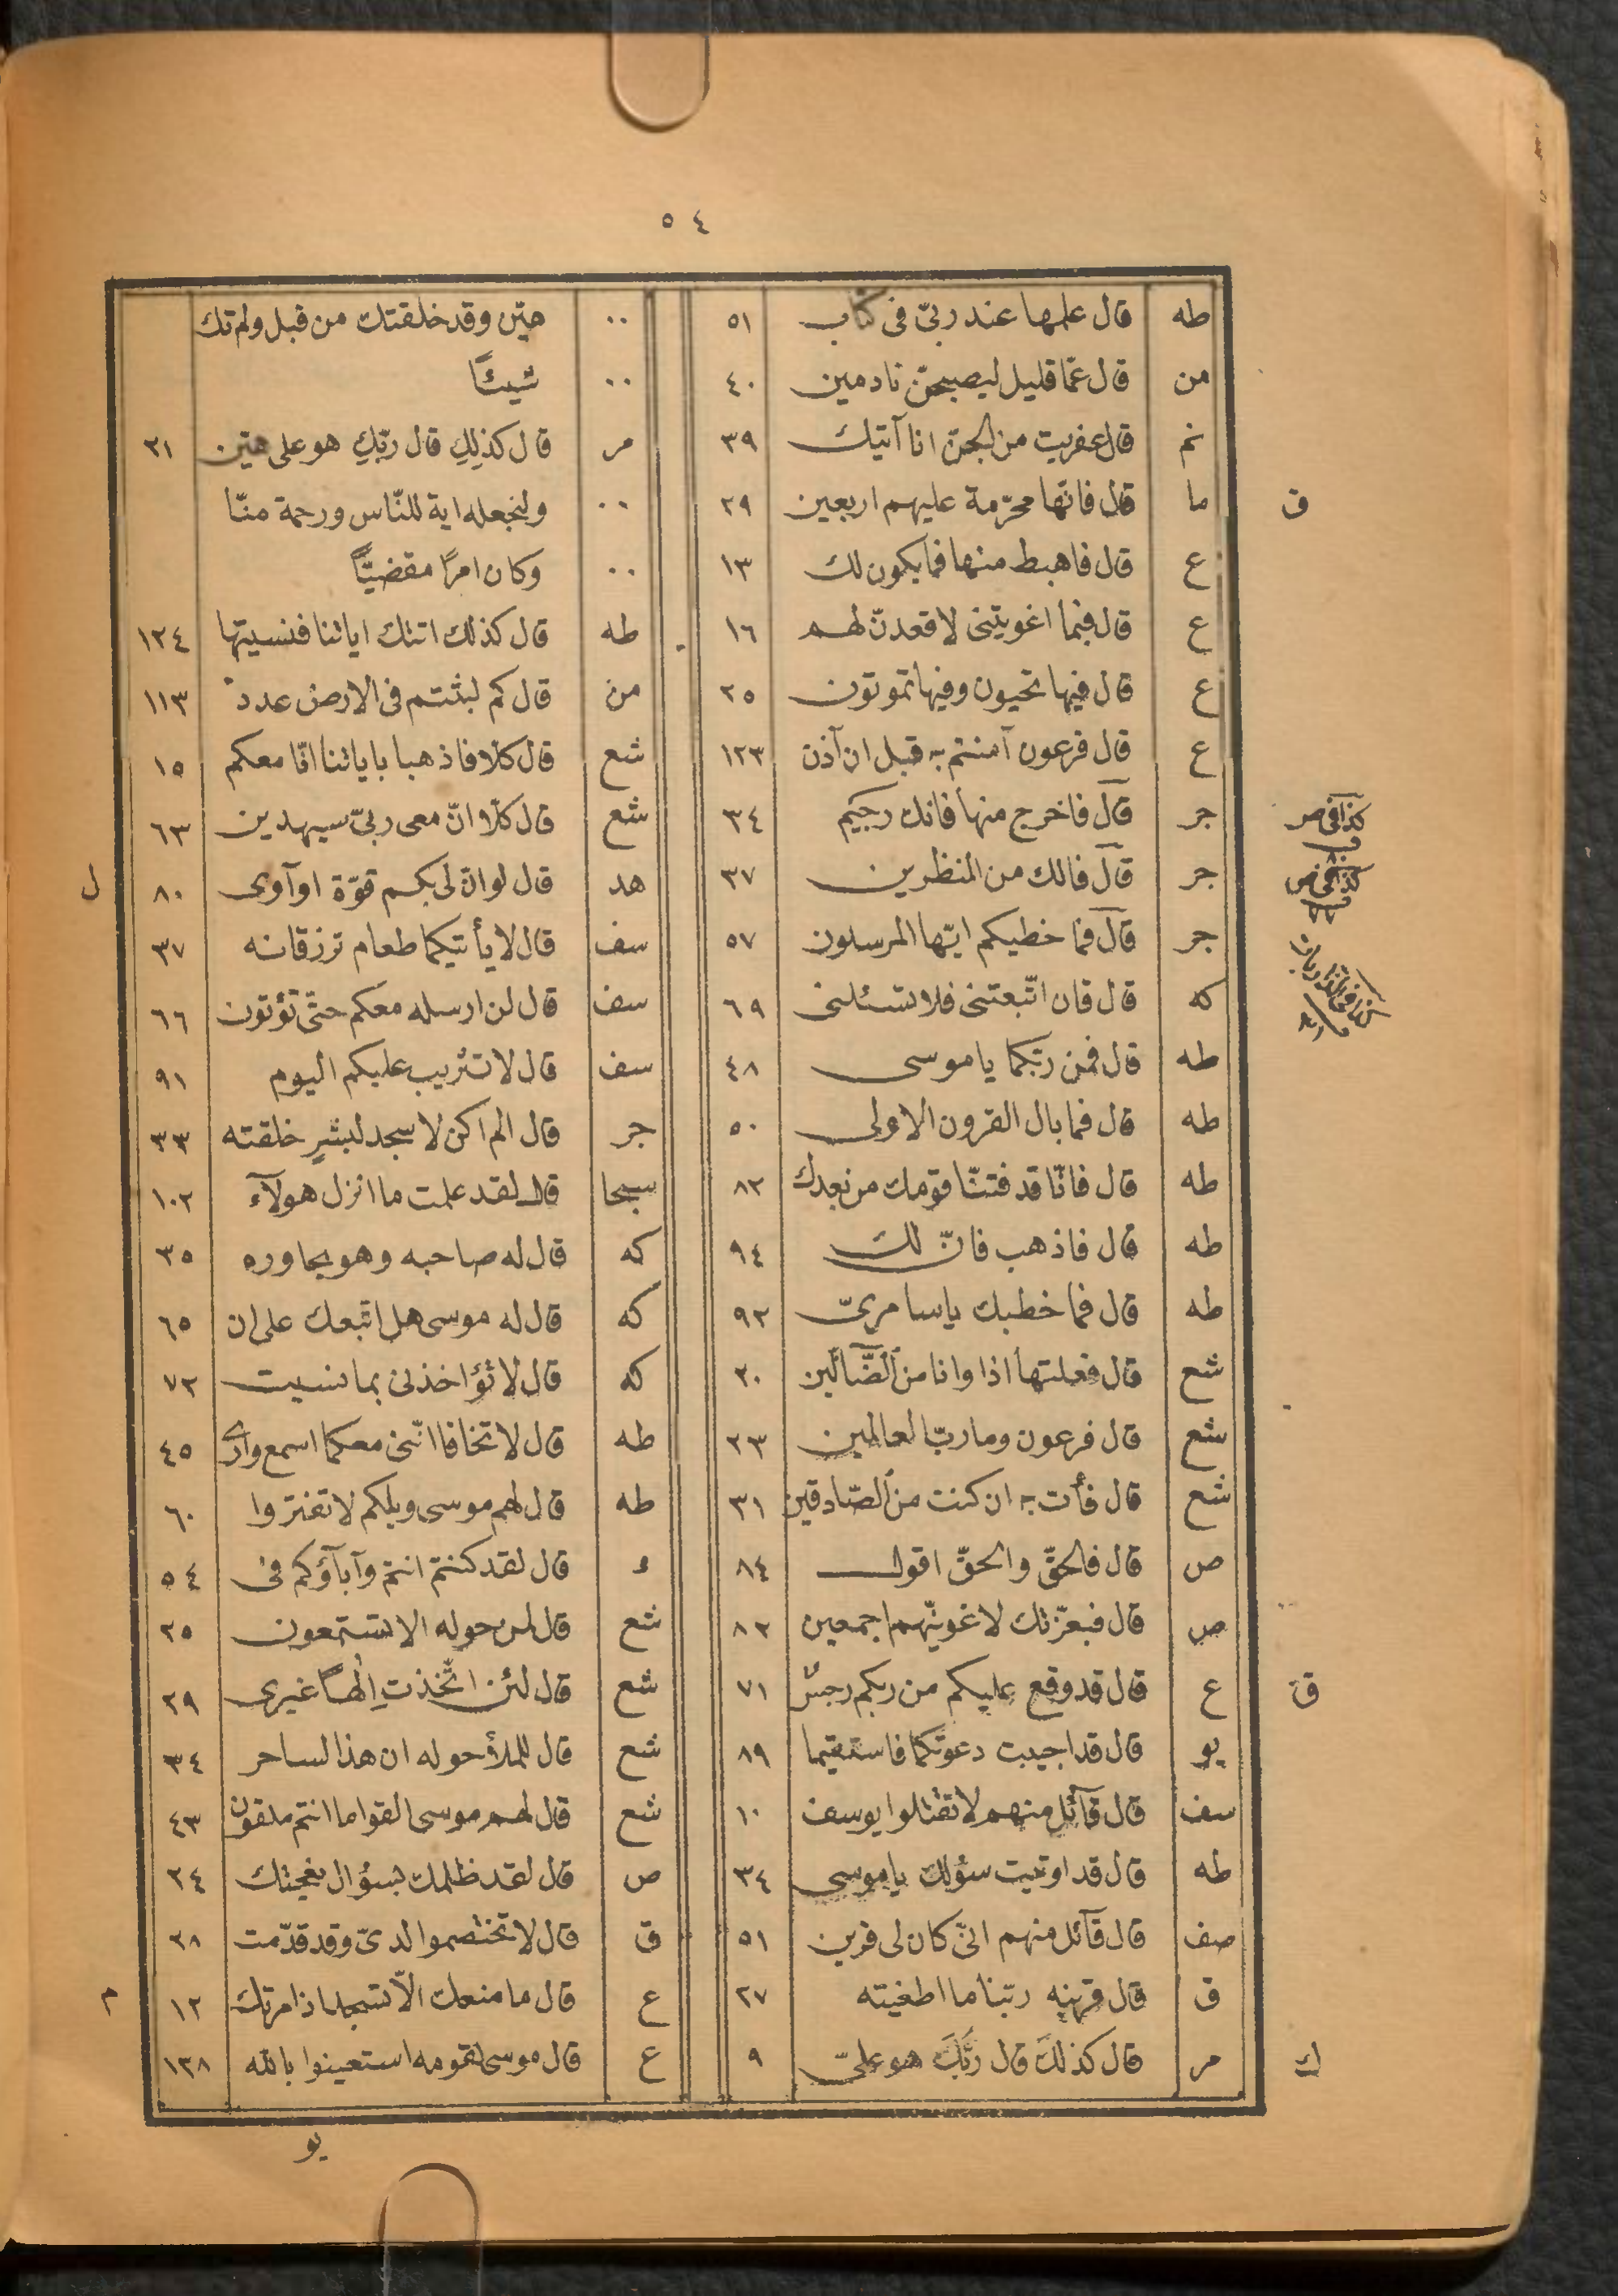 ٥٤
طه قال علمها عند ربّى فى كتاب ٥١
من قال عمّا قليل ليصبحنّ نادمين ٤٠
نم قال عفريت من الجنّ انا آتيك ٣٩
ف ما قال فانّها محرّمة عليهم اربعين ٢٩
ع قال فاهبط منها فما يكون لك ١٣
ع قال فبما اغويتنى لاقعدنّ لهم ١٦
ع قال فيها تحيون وفيها تموتون ٢٥
ع قال فرعون آمنتم به قبل ان آذن ١٢٣
جر قال فاخرج منها فانك رجيم ٣٤
كذا فى ص
جر قال فالك من المنظرين ٣٧
كذا فى ص
جر قال فما خطبكم ايّها المرسلون ٥٧
كه قال فان اتّبعتنى فلا تسئلنى ٦٩
طه قال فمن ربّكما يا موسى ٤٨
طه قال فما بال القرون الاولى ٥٠
طه قال فانّا قد فتنّا قومك من بعدك ٨٣
طه قال فاذهب فانّ لك ٩٤
طه قال فما خطبك ياسامرىّ ٩٢
شع قال فعلتها اذا وانا من الضّآلّين ٢٠
شع قال فرعون وما ربّ العالمين ٢٣
شع قال فأت به ان كنت من الصّادقين ٣١
ص قال فالحقّ والحقّ اقول ٨٤
ص قال فبعزّتك لاغوينّهم اجمعين ٨٢
ق ع قال قد وقع عليكم من ربكم رجسٌ ٧١
يو قال قد اجيبت دعوتكما فاستقيما ٨٩
سف قال قآئل منهم لا تقتلوا يوسف ١٠
طه قال قد اوتيت سؤلك يا موسى ٣٤
صف قال قآئل منهم انّى كان لى قرين ٥١
ق قال قرينه ربّنا ما اطغيته ٢٧
ك مر قال كذلكَ قال ربّكَ هو علىّ ٩
٠٠ هيّن وقد خلقتك من قبل ولم تك
٠٠ شيئًا
مر قال كذلِكِ قال ربّكِ هو على هيّن ٢١
٠٠ ولنجعله اية للنّاس ورحمة منّا
٠٠ وكان امرًا مقضيًّا
طه قال كذلك اتتك اياتنا فنسيتها ١٢٤
من قال كم لبثتم فى الارض عدد ١١٣
شع قال كلّا فاذهبا باياتنا انّا معكم ١٥
شع قال كلّا انّ معى ربّى سيهدين ٦٣
ل هد قال لوانّ لى بكم قوّة او آوى ٨٠
سف قال لا يأتيكما طعام ترزقانه ٣٧
سف قال لن ارسله معكم حتّى تؤتون ٦٦
سف قال لا تثريب عليكم اليوم ٩١
جر قال لم اكن لاسجد لبشرٍ خلقته ٣٣
سبحا قال لقد علمت ما انزل هولآء ١٠٢
كه قال له صاحبه وهو يحاوره ٣٥
كه قال له موسى هل اتبعك على ان ٦٥
كه قال لا تؤاخذنى بما نسيت ٧٢
طه قال لا تخافا انّنى معكما اسمع وارى ٤٥
طه قال لهم موسى ويلكم لا تفتروا ٦٠
ء قال لقد كنتم انتم وآبآؤكم فى ٥٤
شع قال لمن حوله الا تستمعون ٢٥
شع قال لئن اتّخذتِ الٰهًا غيرى ٢٩
شع قال للملأ حوله ان هذا لساحر ٣٤
شع قال لهم موسى القوا ما انتم ملقون ٤٣
ص قال لقد ظلمك بسؤال نعجتك ٢٤
ق قال لا تختصموا لدىّ وقد قدّمت ٢٨
م ع قال ما منعك الّا تسجد اذ امرتك ١٢
ع قال موسى لقومه استعينوا بالله ١٢٨
يو